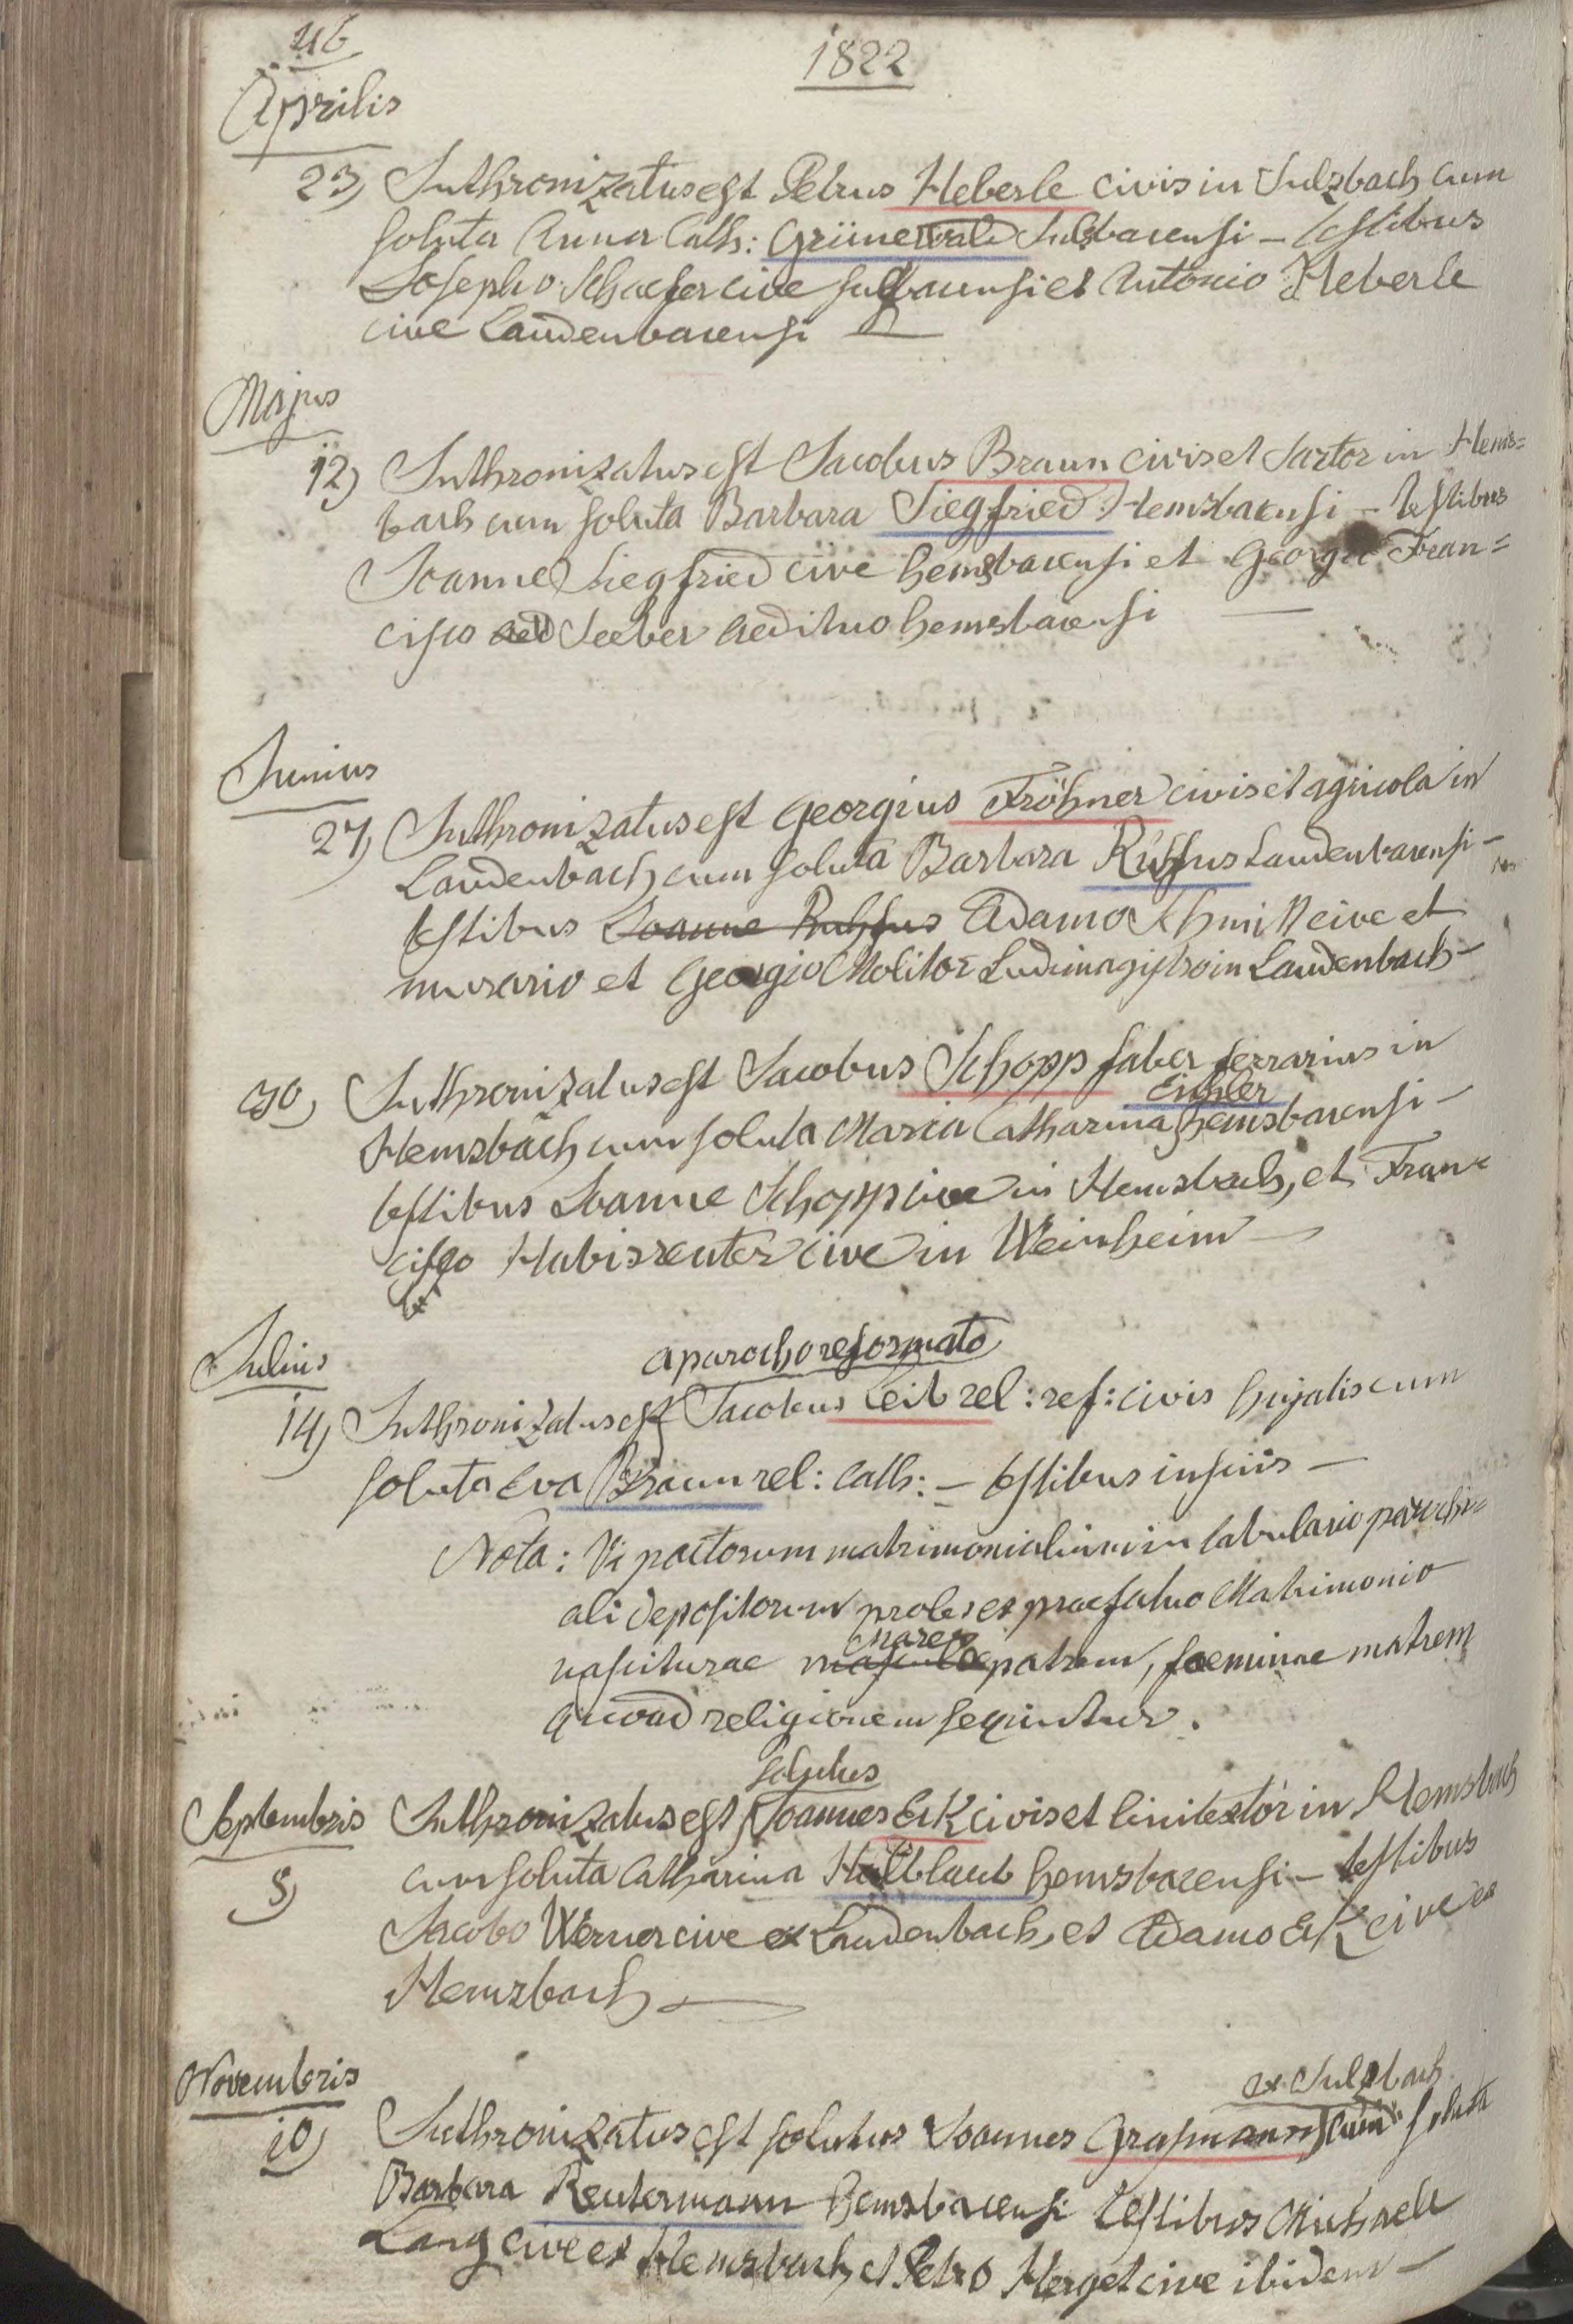 46
1822
Aprilis
23) Inthronizatus est Petrus Heberle civis in Sulzbach cum
soluta Anna Cath: Grünewald Sulzbacensi – testibus
Josepho Schaefer cive sulzbacensi et Antonio Heberle
cive Laudenbacensi
Majus
12) Inthronizatus est Jacobus Braun civis et Sartor in Hems=
bach cum soluta Barbara Siegfried Hemsbacensi – testibus
Joanne Siegfried cive hemsbacensi et Georgio Fran=
cisco aed Seeber aedituo hemsbacensi
Junius
27) Inthronizatus est Georgius Fröhner civis et agricola in
Laudenbach cum soluta Barbara Ruhfus Laudenbacensi –
testibus Joanne Ruhfus Adamo Schmitt cive et
murario et Georgio Molitor Ludimagistro in Laudenbach –
30) Inthronizatus est Jacobus Schopp faber ferrarius in
Eichler
Hemsbach cum soluta Maria Catharina hemsbacensi –
testibus Joanne Schopp cive in Hemsbach, et Fran=
cisco Habisreuter cive in Weinheim –
a parocho reformato
Julius
14) Inthronizatus est Jacobus Leib rel: ref: civis hujatis cum
soluta Eva Braun rel: cath: – testibus in suis –
Nota: Vi pactorum matrimonialium in tabulario parochi=
ali depositorum proles ex praefatuo Matrimonio
mares
nasciturae masculae patrem, foeminae matrem
quoad religionem sequuntur.
solutus
Septembris Inthronizatus est Joannes Eck civis et linitextor in Hemsbach
8) cum soluta Catharina Hüttlaub hemsbacensi – testibus
Jacobo Werner cive ex Laudenbach, et Adamo Eck cive ex
Hemsbach
Novembris
ex Sulzbach
10) Inthronizatus est solutus Joannes Grasmann cum soluta
Barbara Reutermann Hemsbacensi testibus Michaele
Lang cive ex Hemsbach et Petro Herget cive ibidem –